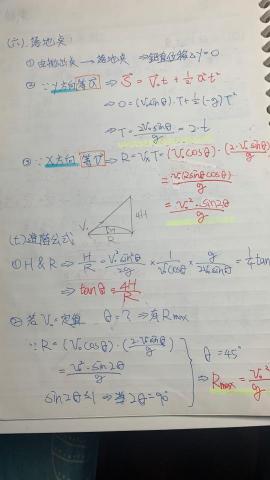 (六). 落地点
① 由抛出点 → 落地点 ⇒ 鉛直位移 Δy=0
② ∵ y方向 等a ⇒ S = V₀t + ½at²
⇒ 0 = (V₀sinθ)·T + ½(-g)T²
⇒ T = 2V₀sinθ/g = 2·t
③ ∵ x方向 等V ⇒ R = VₓT = (V₀cosθ)·(2·V₀sinθ/g)
= V₀²(2sinθcosθ)/g
= V₀²·sin2θ/g
V₀
4H
H
R
(七) 進階公式
① H & R ⇒ H/R = V₀²sin²θ/2g × 1/V₀cosθ × g/2V₀sinθ = ¼tan
⇒ tanθ = 4H/R
② 若 V₀=定值 θ=? ⇒ 有 Rmax
∵ R = (V₀cosθ)·(2·V₀sinθ/g)
= V₀²·sin2θ/g
sin2θ≤1 ⇒ 當 2θ=90°
θ=45°
⇒ Rmax = V₀²/g